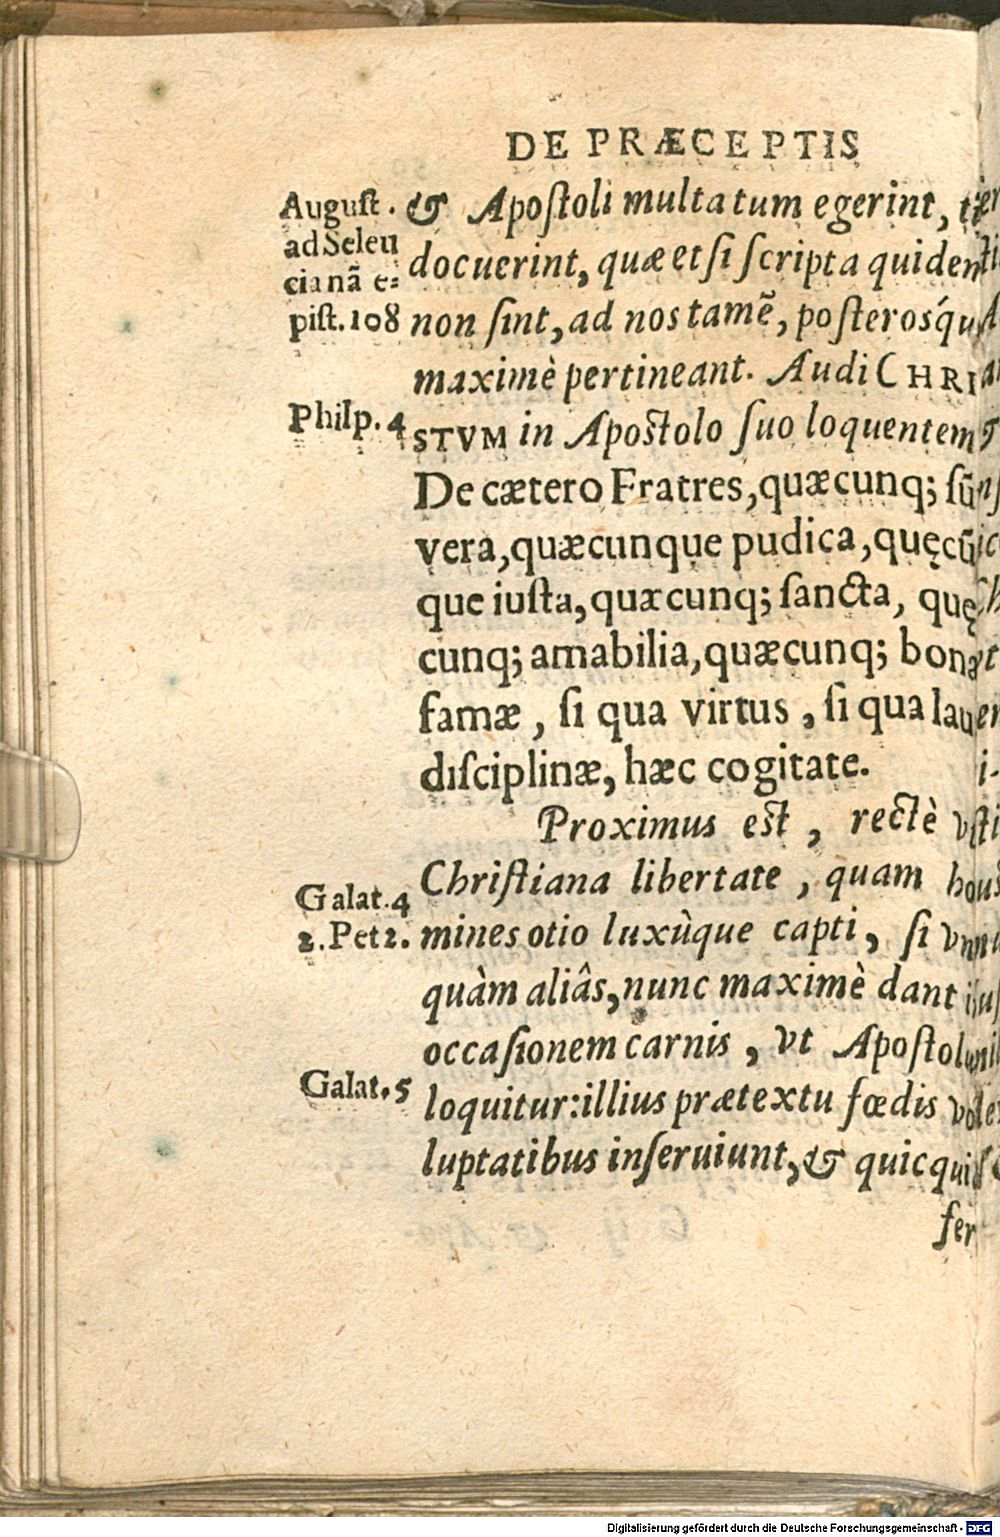 DE PRÆCEPTIS
August.
ad Seleu
cianã e-
pist. 108
& Apostoli multa tum egerint,
docuerint, quæ etsi scripta quidem
non sint, ad nos tamẽ, posterosq́ue
maximè pertineant. Audi CHRI
Philp. 4
STVM in Apostolo suo loquentem
De cætero Fratres, quæcunq; sũt
vera, quæcunque pudica, quęcũ
que iusta, quæcunq; sancta, quę
cunq; amabilia, quæcunq; bonæ
famæ, si qua virtus, si qua laus
disciplinæ, hæc cogitate.
Proximus est, rectè vti
Galat. 4
2. Pet 2.
Christiana libertate, quam ho
mines otio luxùque capti, si vn
quàm aliâs, nunc maximè dant in
occasionem carnis, vt Apostolus
Galat. 5
loquitur: illius prætextu fœdis vo
luptatibus inseruiunt, & quicquid
fer
Digitalisierung gefördert durch die Deutsche Forschungsgemeinschaft - DFG